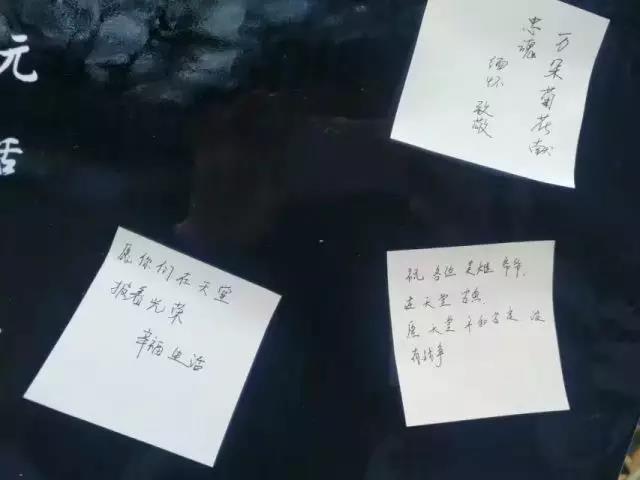 元
万朵菊花献
忠魂
缅怀 致敬
愿你们在天堂
披着光荣
幸福生活
祝各位英雄爷爷,
在天堂安息.
愿天堂平和安定 没
有战争